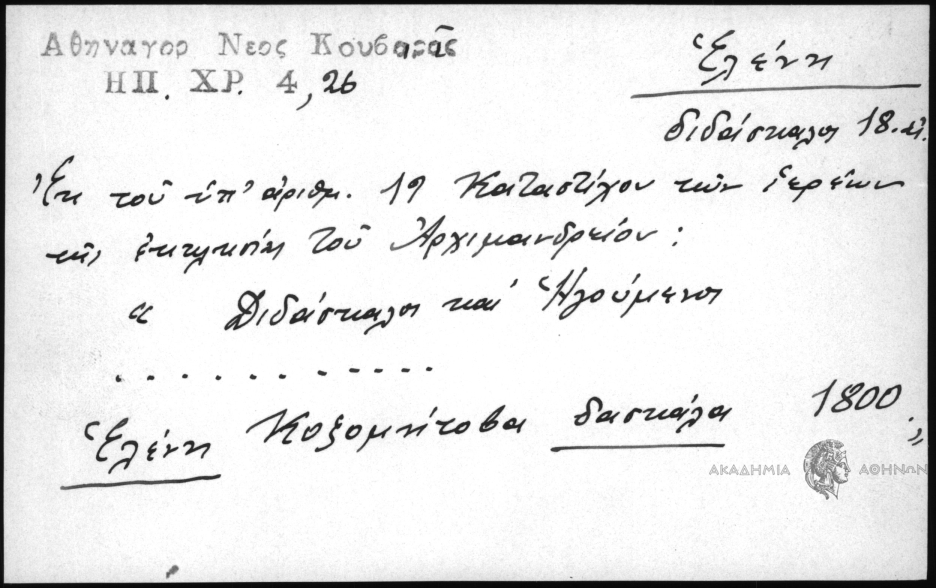 Αθηναγορ Νεος Κουβαρᾶς
ΗΠ. ΧΡ. 4, 26
Ἑλένη
διδάσκαλοι 18. αἰ.
Ἐκ τοῦ ὑπ' ἀριθμ. 19 Καταστίχου τῶν ἱερέων
τῆς τοῦ Ἀρχιμανδρείου:
" Διδάσκαλοι καὶ Ἡγούμενοι
. . . . . . . . . . . .
Ἑλένη δασκάλα 1800
ΑΚΑΔΗΜΙΑ ΑΘΗΝΩΝ